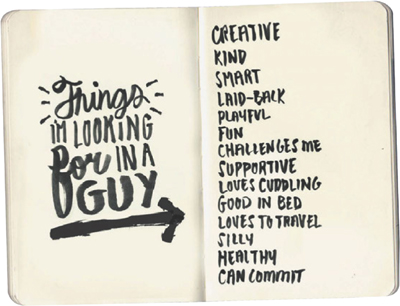 Things
I'M LOOKING
for IN A
GUY
CREATIVE
KIND
SMART
LAID-BACK
PLAYFUL
FUN
CHALLENGES ME
SUPPORTIVE
LOVES CUDDLING
GOOD IN BED
LOVES TO TRAVEL
SILLY
HEALTHY
CAN COMMIT